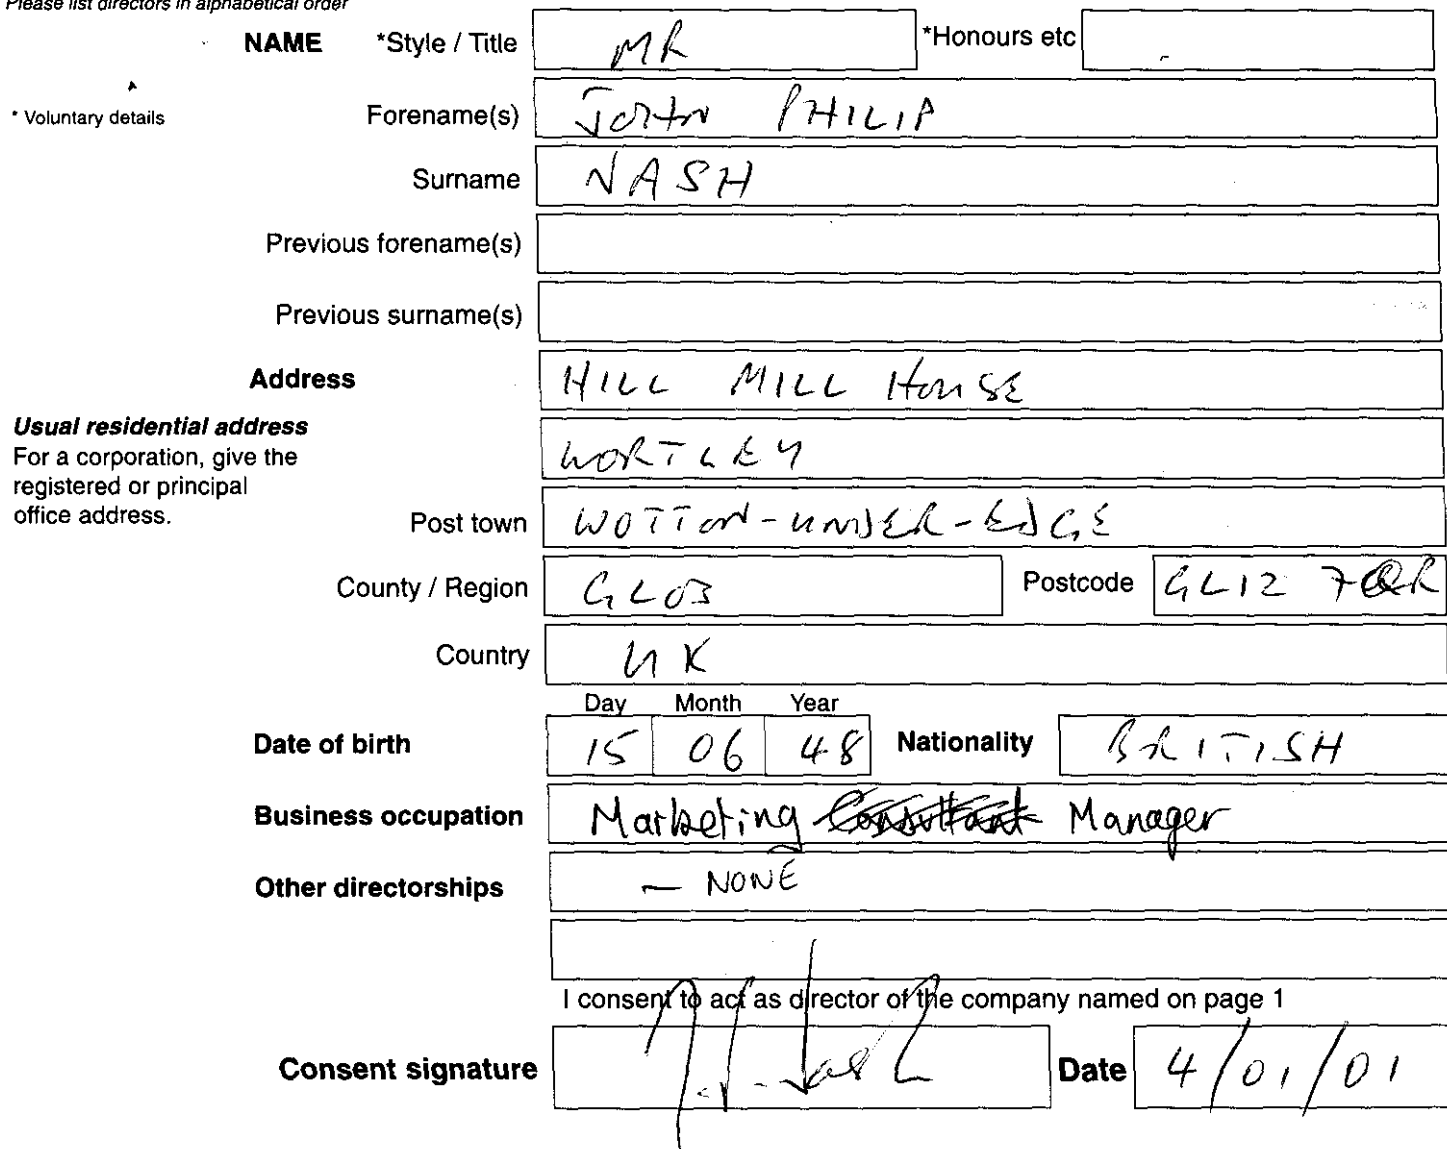 Please list directors in alphabetical order
NAME *Style / Title MR *Honours etc
* Voluntary details Forename(s) JOHN PHILIP
Surname NASH
Previous forename(s)
Previous surname(s)
Address HILL MILL HOUSE
Usual residential address
For a corporation, give the WORTLEY
registered or principal
office address. Post town WOTTON-UNDER-EDGE
County / Region GLOS Postcode GL12 7QR
Country UK
Day Month Year
Date of birth 15 06 48 Nationality BRITISH
Business occupation Marketing Consultant Manager
Other directorships — NONE
I consent to act as director of the company named on page 1
Consent signature Date 4/01/01